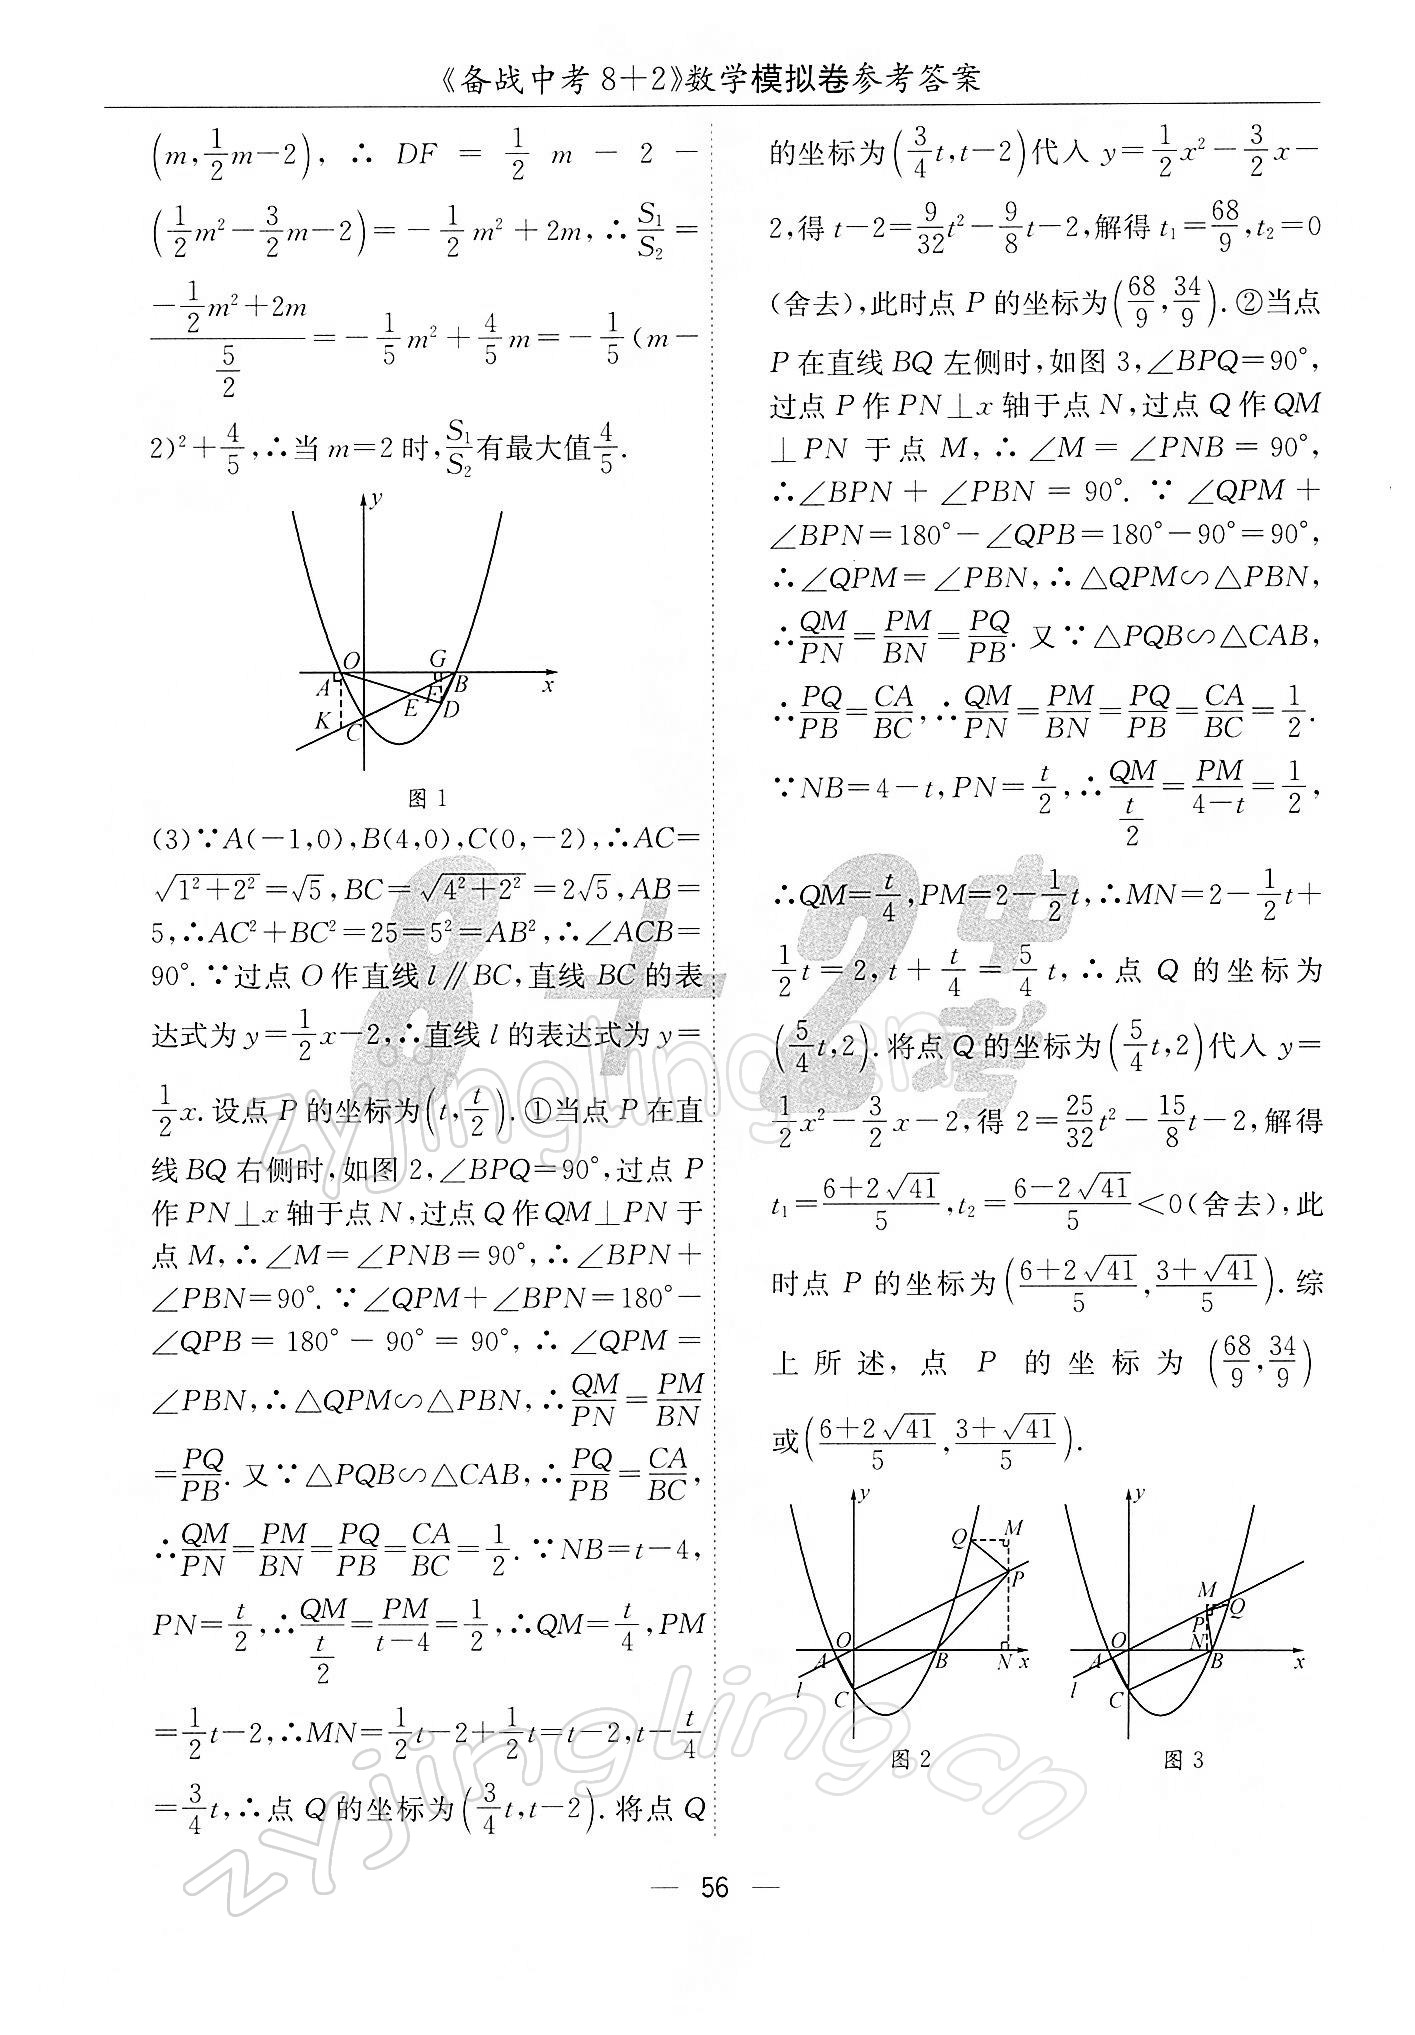 《备战中考8+2》数学模拟卷参考答案
(m,1/2m-2), ∴ DF = 1/2 m - 2 -
(1/2m²-3/2m-2)=-1/2m²+2m,∴S₁/S₂=
(-1/2m²+2m)/(5/2)=-1/5m²+4/5m=-1/5(m-
2)²+4/5,∴当m=2时,S₁/S₂有最大值4/5.
y
O
G
A
B
x
F
E
D
K
C
图1
(3)∵A(-1,0),B(4,0),C(0,-2),∴AC=
√(1²+2²)=√5,BC=√(4²+2²)=2√5,AB=
5,∴AC²+BC²=25=5²=AB²,∴∠ACB=
90°.∵过点O作直线l∥BC,直线BC的表
达式为y=1/2x-2,∴直线l的表达式为y=
1/2x.设点P的坐标为(t,t/2).①当点P在直
线BQ右侧时,如图2,∠BPQ=90°,过点P
作PN⊥x轴于点N,过点Q作QM⊥PN于
点M,∴∠M=∠PNB=90°,∴∠BPN+
∠PBN=90°.∵∠QPM+∠BPN=180°-
∠QPB=180°-90°=90°,∴∠QPM=
∠PBN,∴△QPM∽△PBN,∴QM/PN=PM/BN
=PQ/PB.又∵△PQB∽△CAB,∴PQ/PB=CA/BC,
∴QM/PN=PM/BN=PQ/PB=CA/BC=1/2.∵NB=t-4,
PN=t/2,∴QM/(t/2)=PM/(t-4)=1/2,∴QM=t/4,PM
=1/2t-2,∴MN=1/2t-2+1/2t=t-2,t-t/4
=3/4t,∴点Q的坐标为(3/4t,t-2).将点Q
的坐标为(3/4t,t-2)代入y=1/2x²-3/2x-
2,得t-2=9/32t²-9/8t-2,解得t₁=68/9,t₂=0
(舍去),此时点P的坐标为(68/9,34/9).②当点
P在直线BQ左侧时,如图3,∠BPQ=90°,
过点P作PN⊥x轴于点N,过点Q作QM
⊥PN于点M,∴∠M=∠PNB=90°,
∴∠BPN+∠PBN=90°.∵∠QPM+
∠BPN=180°-∠QPB=180°-90°=90°,
∴∠QPM=∠PBN,∴△QPM∽△PBN,
∴QM/PN=PM/BN=PQ/PB.又∵△PQB∽△CAB,
∴PQ/PB=CA/BC,∴QM/PN=PM/BN=PQ/PB=CA/BC=1/2.
∵NB=4-t,PN=t/2,∴QM/(t/2)=PM/(4-t)=1/2,
∴QM=t/4,PM=2-1/2t,∴MN=2-1/2t+
1/2t=2,t+t/4=5/4t,∴点Q的坐标为
(5/4t,2).将点Q的坐标为(5/4t,2)代入y=
1/2x²-3/2x-2,得2=25/32t²-15/8t-2,解得
t₁=(6+2√41)/5,t₂=(6-2√41)/5<0(舍去),此
时点P的坐标为((6+2√41)/5,(3+√41)/5).综
上所述,点P的坐标为(68/9,34/9)
或((6+2√41)/5,(3+√41)/5).
y
Q
M
P
O
A
B
N
x
l
C
图2
y
M
Q
P
O
N
A
B
x
l
C
图3
8+2中考
zyjingling.cn
zyjingling.cn
— 56 —